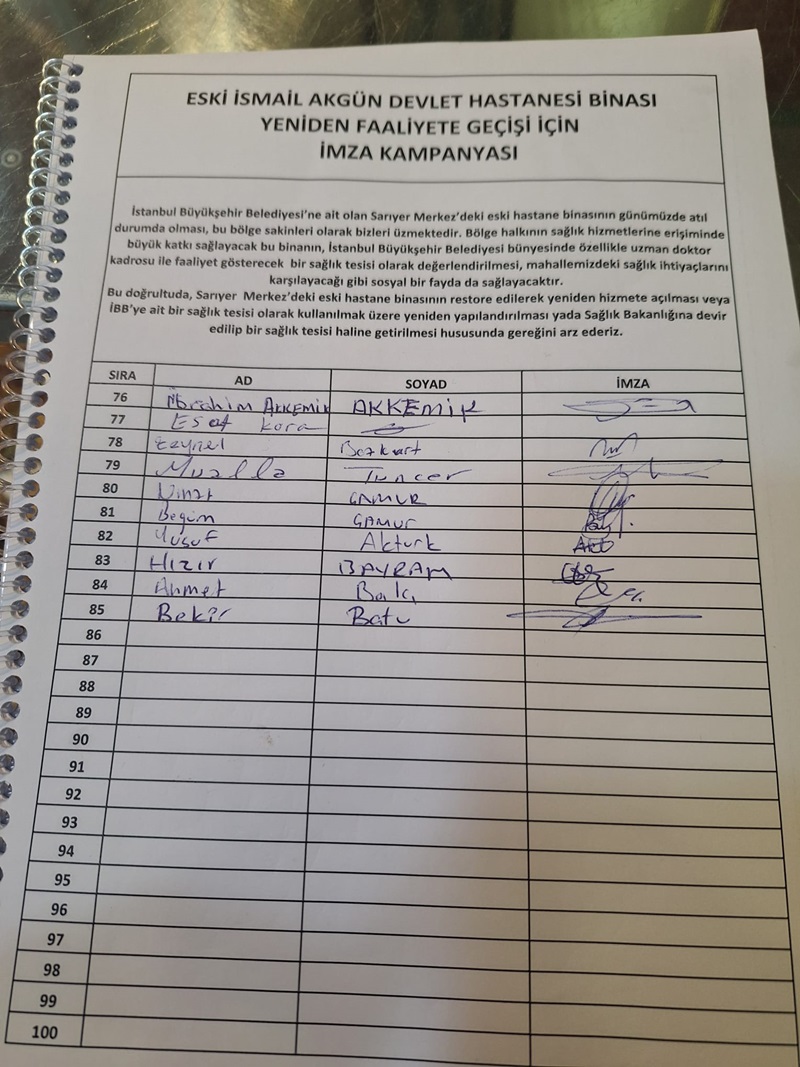 ESKİ İSMAİL AKGÜN DEVLET HASTANESİ BİNASI
YENİDEN FAALİYETE GEÇİŞİ İÇİN
İMZA KAMPANYASI
İstanbul Büyükşehir Belediyesi'ne ait olan Sarıyer Merkez'deki eski hastane binasının günümüzde atıl
durumda olması, bu bölge sakinleri olarak bizleri üzmektedir. Bölge halkının sağlık hizmetlerine erişiminde
büyük katkı sağlayacak bu binanın, İstanbul Büyükşehir Belediyesi bünyesinde özellikle uzman doktor
kadrosu ile faaliyet gösterecek bir sağlık tesisi olarak değerlendirilmesi, mahallemizdeki sağlık ihtiyaçlarını
karşılayacağı gibi sosyal bir fayda da sağlayacaktır.
Bu doğrultuda, Sarıyer Merkez'deki eski hastane binasının restore edilerek yeniden hizmete açılması veya
İBB'ye ait bir sağlık tesisi olarak kullanılmak üzere yeniden yapılandırılması yada Sağlık Bakanlığına devir
edilip bir sağlık tesisi haline getirilmesi hususunda gereğini arz ederiz.
SIRA AD SOYAD İMZA
76 İbrahim AKKEMİK AKKEMİK
77 Esat Kora
78 Zeynel Bozkurt
79 Mualla Tuncer
80 GAMUR
81 Begüm GAMUR
82 Yusuf Akturk
83 Hızır BAYRAM
84 Ahmet Balcı
85 Bekir Batu
86
87
88
89
90
91
92
93
94
95
96
97
98
99
100